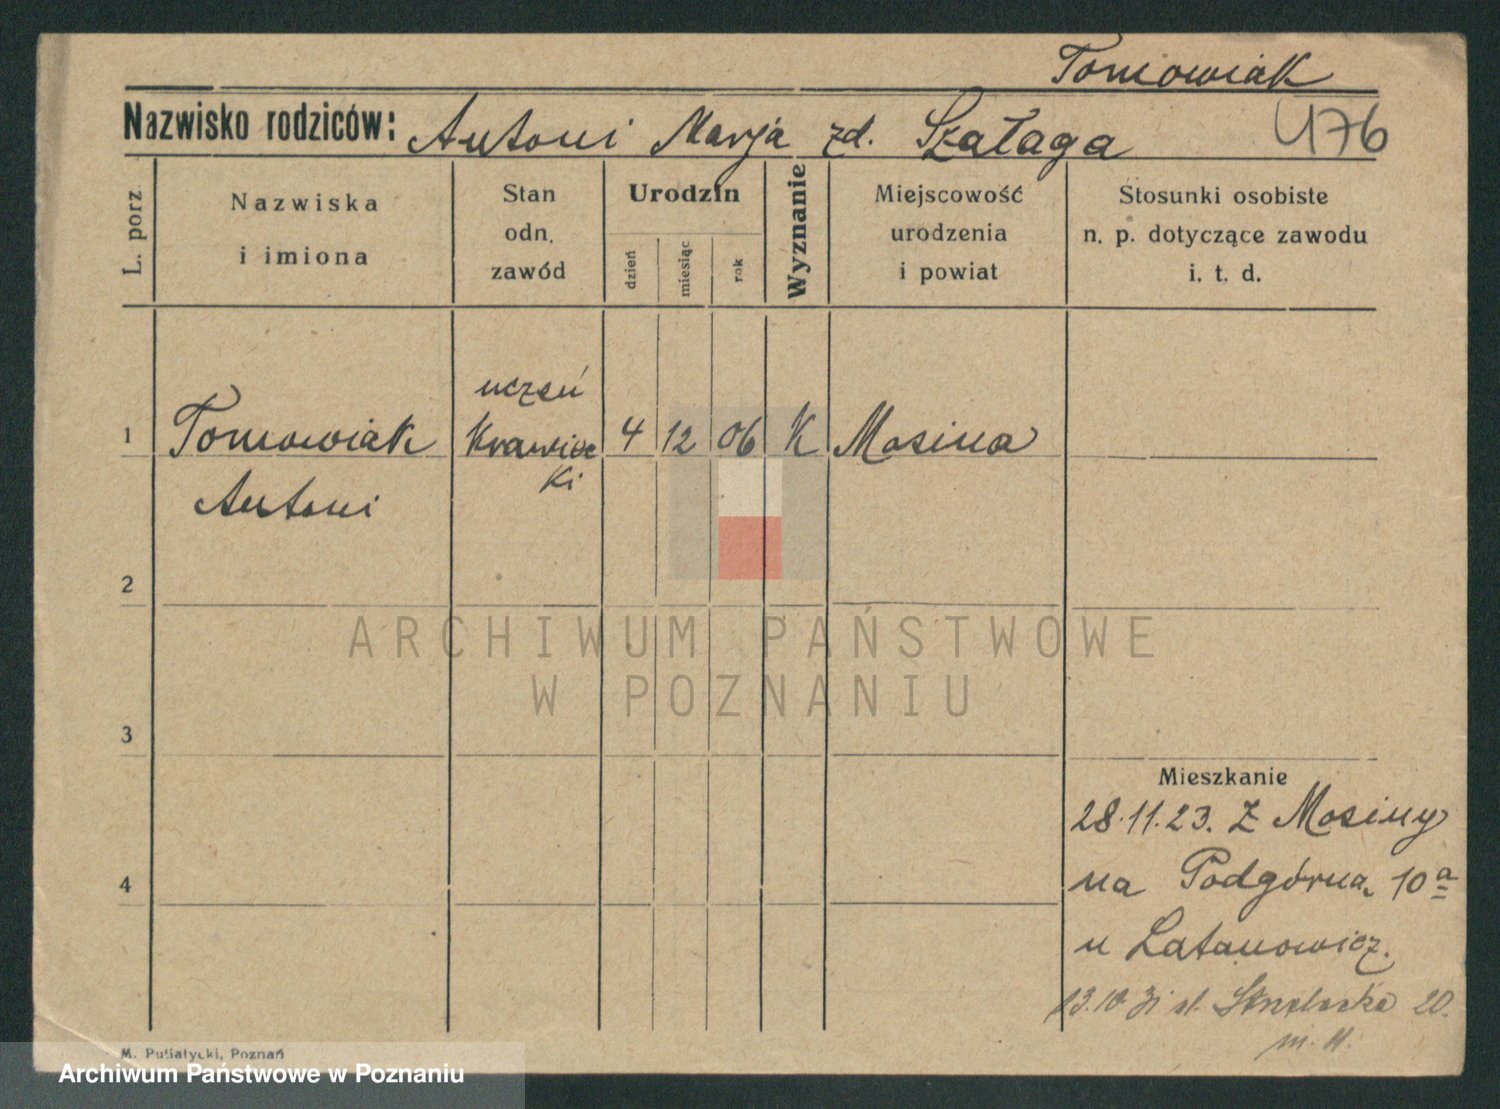 Tomowiak
Nazwisko rodziców: Antoni Marja zd. Szałaga
476
L. porz
Nazwiska
i imiona
Stan
odn.
zawód
Urodzin
dzień
miesiąc
rok
Wyznanie
Miejscowość
urodzenia
i powiat
Stosunki osobiste
n. p. dotyczące zawodu
i. t. d.
1 Tomowiak uczeń Krawiec 4 12 06 K Mosina
ki
Antoni
2
3
4
ARCHIWUM PAŃSTWOWE
W POZNANIU
Mieszkanie
28.11.23. Z Mosiny
na Podgórna 10a
u Latanowicz.
13.10 31 st. 20.
m.
M. Putiatycki, Poznań
Archiwum Państwowe w Poznaniu